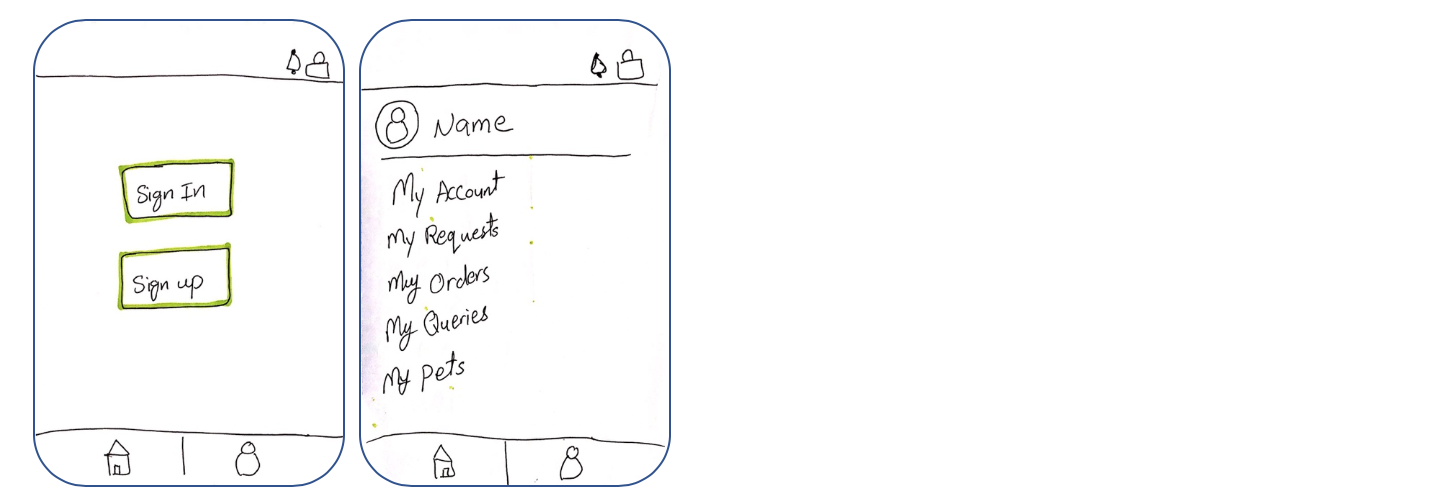 Sign In
Sign up
Name
My Account
My Requests
My Orders
My Queries
My Pets